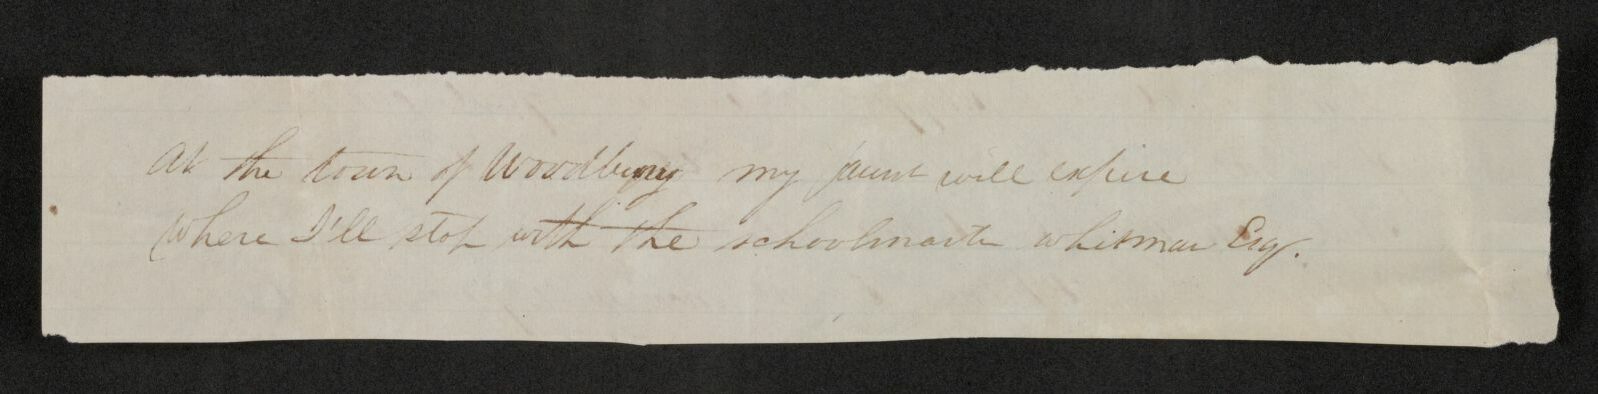 At the town of Woodbury my jaunt will expire
Where I'll stop with the schoolmaster whitman Esq.